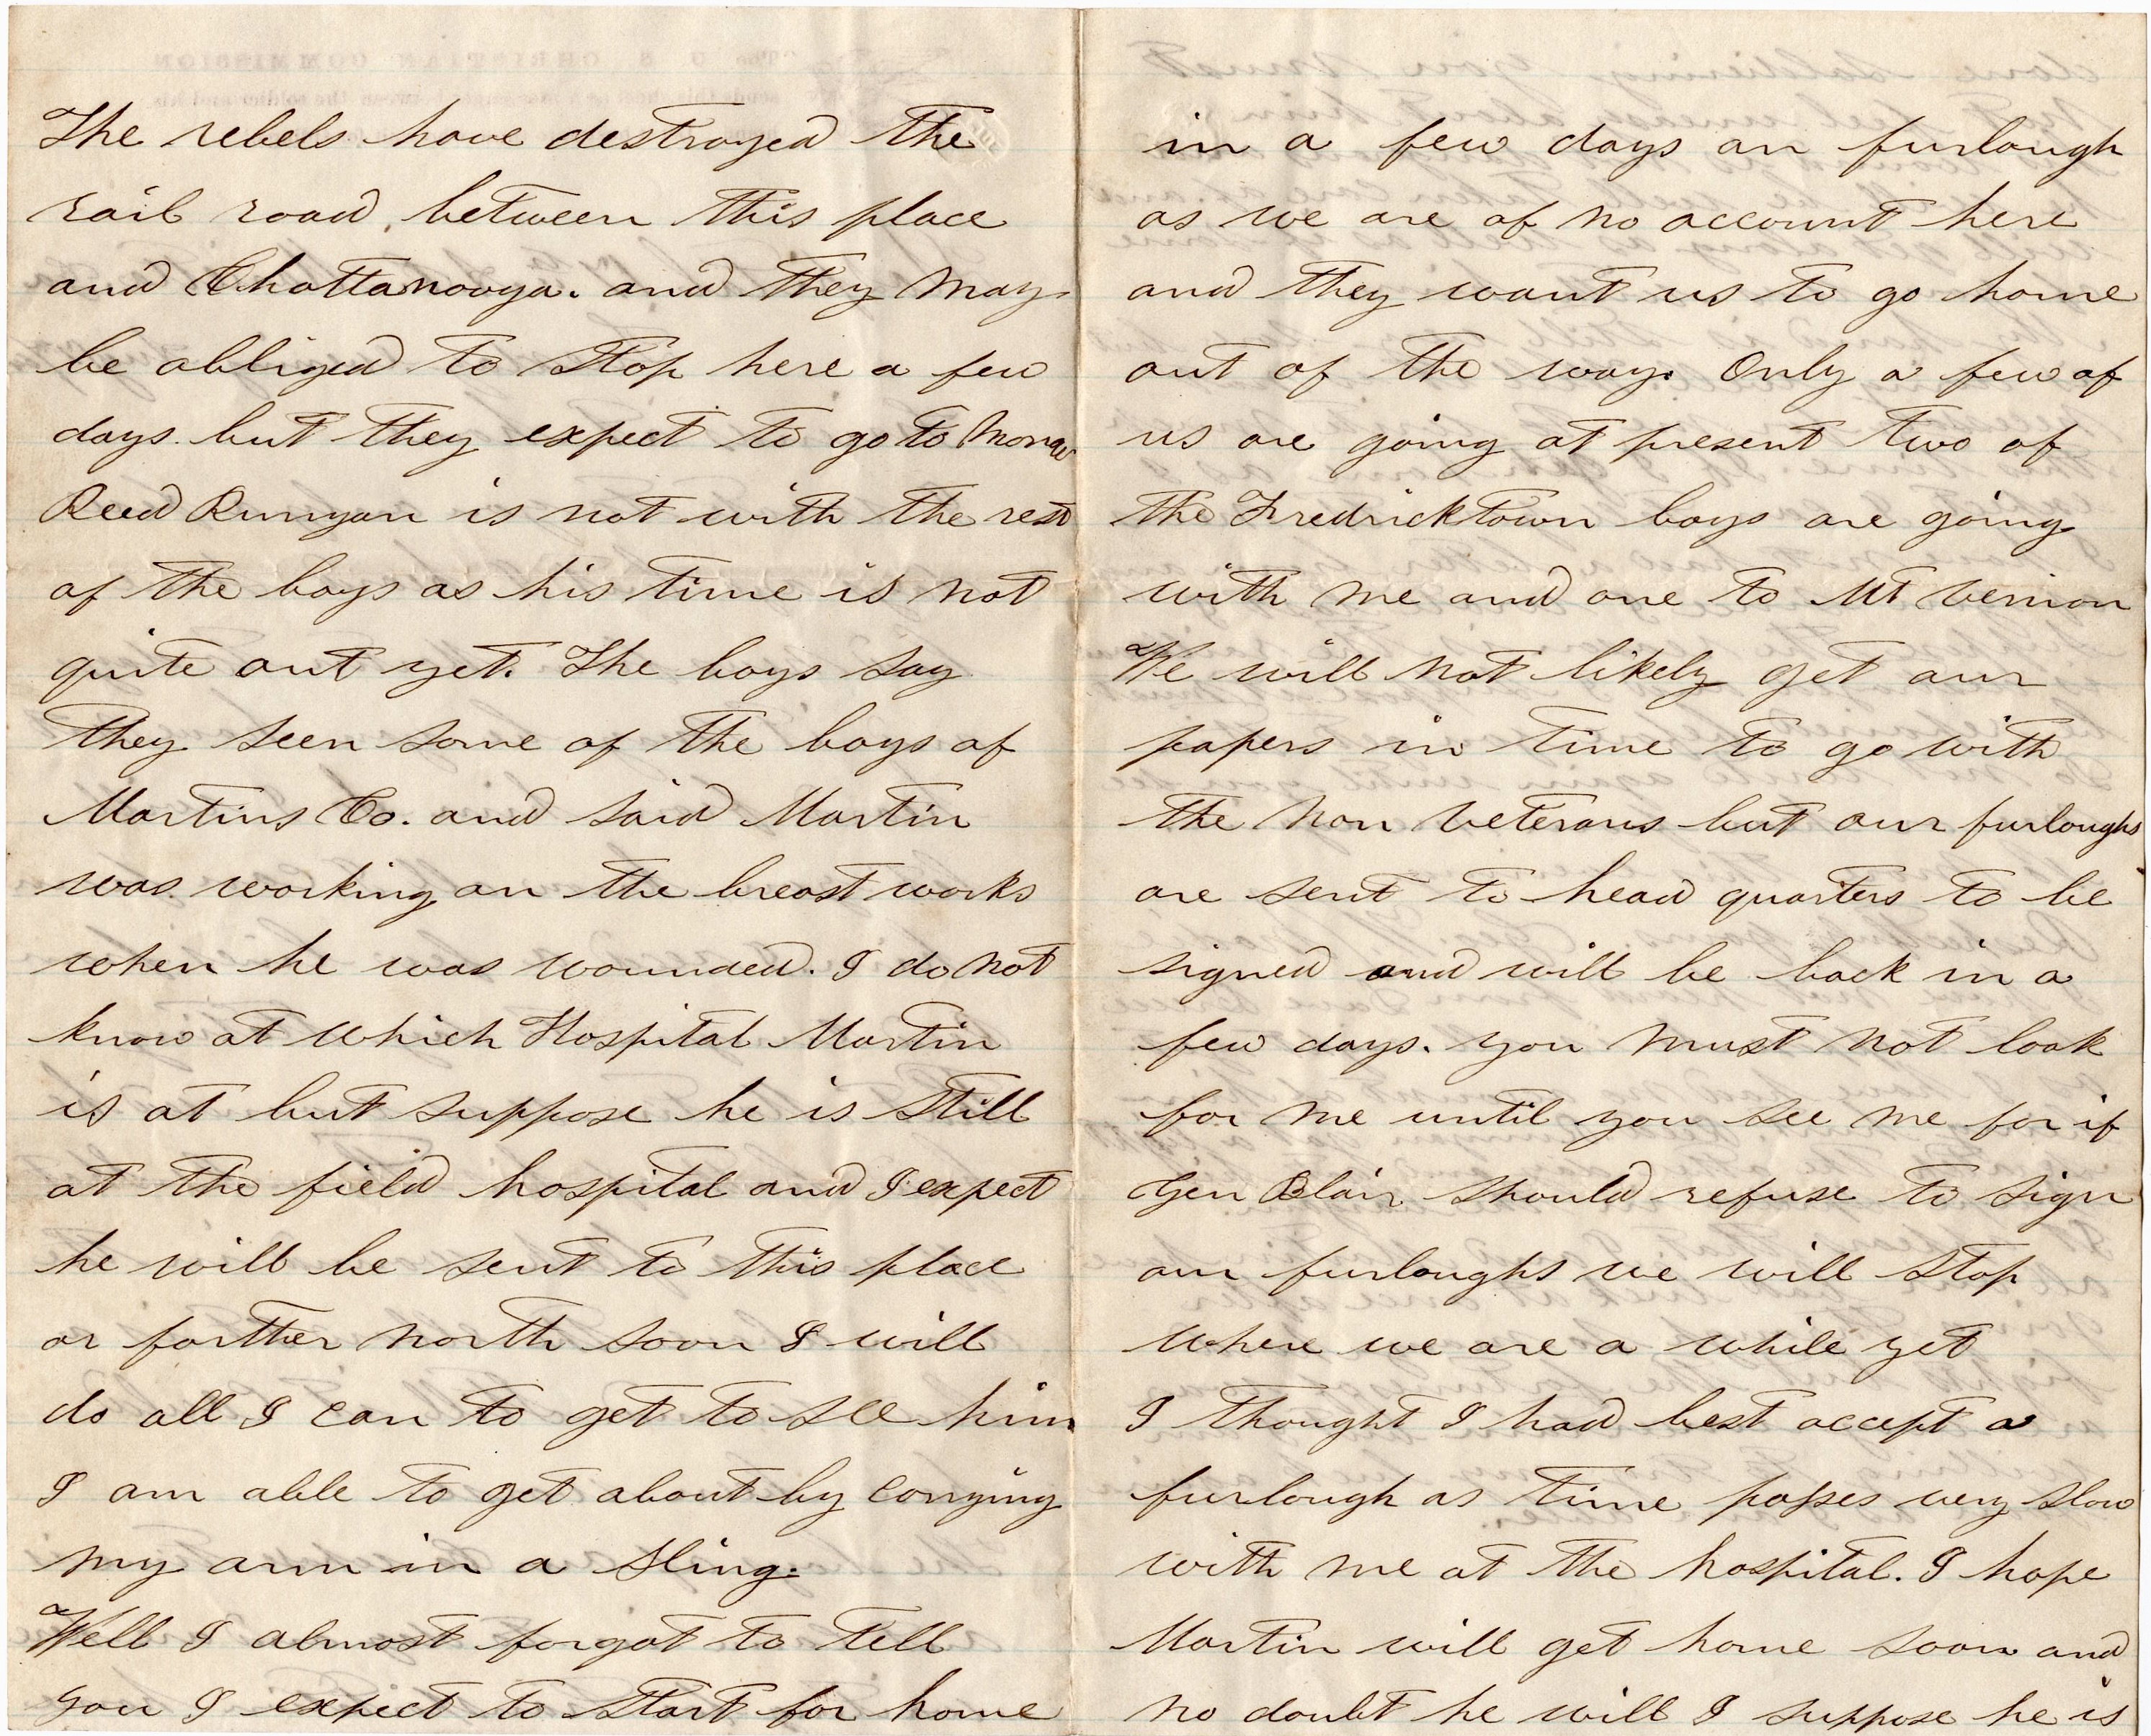 The rebels have destroyed the
rail road, between this place
and Chattanooga. and they may
be obliged to stop here a few
days. but they expect to go to morrow
Reed Runyan is not with the rest
of the boys as his time is not
quite out yet. The boys say
they seen some of the boys of
Martins Co. and said Martin
was working on the breast works
when he was wounded. I do not
know at which Hospital Martin
is at but suppose he is still
at the field hospital and I expect
he will be sent to this place
or farther north soon I will
do all I can to get to see him
I am able to get about by carrying
my arm in a sling.
Well I almost forgot to tell
you I expect to start for home
in a few days on furlough
as we are of no account here
and they want us to go home
out of the way. Only a few of
us are going at present two of
the Fredricktown boys are going
with me and one to Mt Vernon
We will not likely get our
papers in time to go with
the non veterans but our furloughs
are sent to head quarters to be
signed and will be back in a
few days. you must not look
for me until you see me for if
Gen Blair should refuse to sign
our furloughs we will stop
where we are a while yet
I thought I had best accept a
furlough as time passes very slow
with me at the hospital. I hope
Martin will get home soon and
no doubt he will I suppose he is